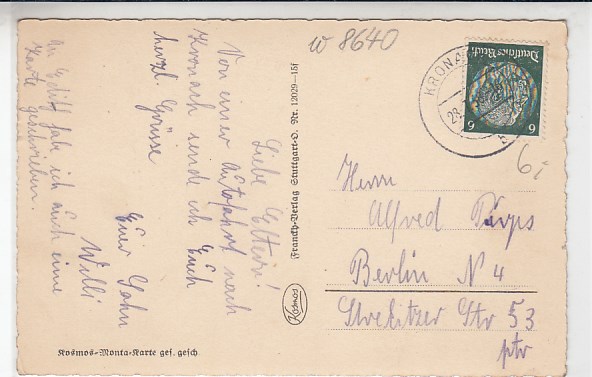 Liebe Eltern!
Von einer Autofahrt nach
Kronach sende ich Euch
herzl. Grüsse
Euer Sohn
Willi
An Edith hab ich auch eine
Karte geschrieben.
w 8640
Franckh-Verlag Stuttgart-O. Nr. 12029—15f
Kosmos
Kosmos-Monta-Karte ges. gesch
KRONA
28.
Deutsches Reich
6 6
6,
Herrn
Alfred
Berlin N 4
Strelitzer Str 53
ptr